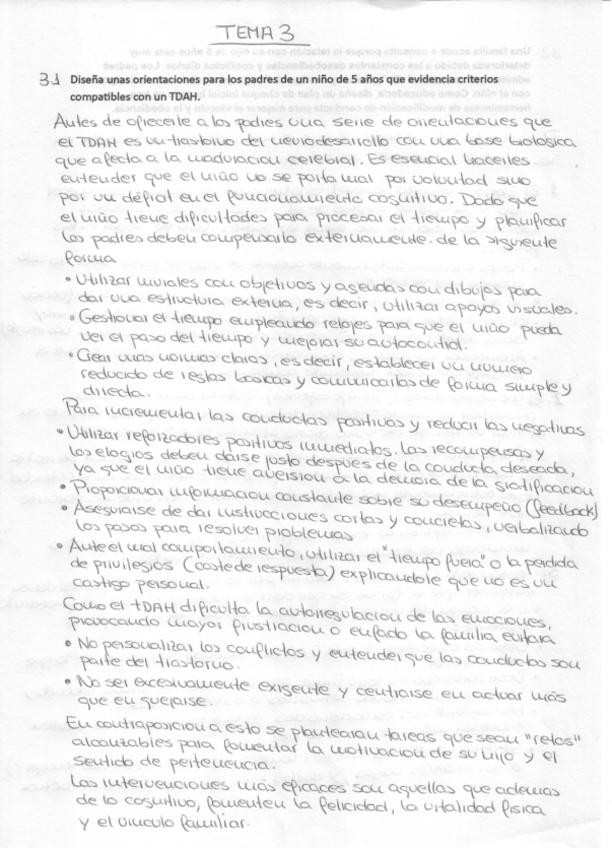 TEMA 3
3.1 Diseña unas orientaciones para los padres de un niño de 5 años que evidencia criterios
compatibles con un TDAH.
Antes de ofrecerle a los padres una serie de orientaciones que
el TDAH es un trastorno del neurodesarrollo con una base biologica
que afecta a la maduracion cerebral. Es esencial hacerles
entender que el niño no se porta mal por voluntad sino
por un déficit en el funcionamiento cognitivo. Dado que
el niño tiene dificultades para procesar el tiempo y planificar
los padres deben compensarlo externamente. de la siguiente
forma
• Utilizar murales con objetivos y agendas con dibujos para
dar una estructura externa, es decir, utilizar apoyos visuales.
• Gestionar el tiempo empleando relojes para que el niño pueda
ver el paso del tiempo y mejorar su autocontrol.
• Crear unas normas claras, es decir, establecer un numero
reducido de reglas basicas y comunicarlas de forma simple y
directa.
Para incrementar las conductas positivas y reducir las negativas
• Utilizar reforzadores positivos inmediatos. Las recompensas y
los elogios deben darse justo después de la conducta deseada,
ya que el niño tiene aversion a la demora de la gratificacion
• Proporcionar informacion constante sobre su desempeño (feedback)
• Asegurarse de dar instrucciones cortas y concretas, verbalizando
los pasos para resolver problemas
• Ante el mal comportamiento, utilizar el "tiempo fuera" o la perdida
de privilegios (coste de respuesta) explicandole que no es un
castigo personal.
Como el TDAH dificulta la autorregulacion de las emociones,
provocando mayor frustracion o enfado la familia evitara
• No personalizar los conflictos y entender que las conductas son
parte del trastorno.
• No ser excesivamente exigente y centrarse en actuar más
que en quejarse.
En contraposicion a esto se plantearan tareas que sean "retos"
alcanzables para fomentar la motivacion de su hijo y el
sentido de pertenencia.
Las intervenciones más eficaces son aquellas que ademas
de lo cognitivo, fomenten la felicidad, la vitalidad fisica
y el vinculo familiar.